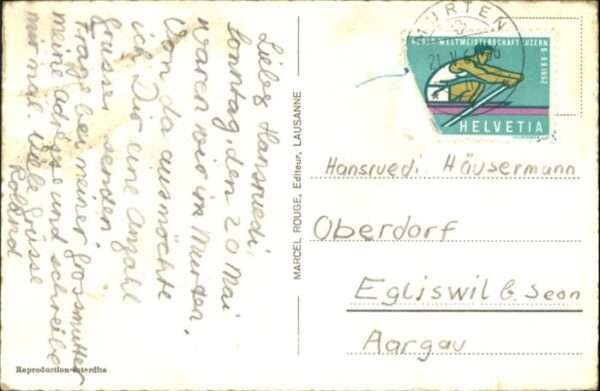 Lieber Hansruedi,
Sonntag, den 20 Mai
waren wir in Murten.
Von da aus möchte
ich Dir eine Anzahl
Grüsse senden.
Frage bei meiner Grossmutter
meine adresse und schreibe
mir mal. Viele Grüsse
Roland
Reproduction interdite
MARCEL ROUGE, Editeur, LAUSANNE
MURTEN
21. V. 6
WELTMEISTERSCHAFT LUZERN
1962
HELVETIA
Hansruedi Häusermann
Oberdorf
Egliswil b. Seon
Aargau